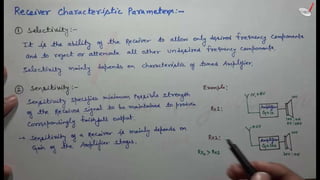 Receiver Characteristic Parameters:-
① Selectivity:-
It is the ability of the Receiver to allow only desired frequency components
and to reject or attenuate all other undesired frequency components.
Selectivity mainly depends on characteristic of tuned Amplifier.
② Sensitivity:-
Sensitivity specifies minimum possible strength
of the Received signal to be maintained to produce
correspondingly faithful output.
→ Sensitivity of a Receiver is mainly depends on
Gain of the Amplifier stages.
Example:
Rx1:
Amplifier
Rx2:
Amplifier
Rx2 > Rx1